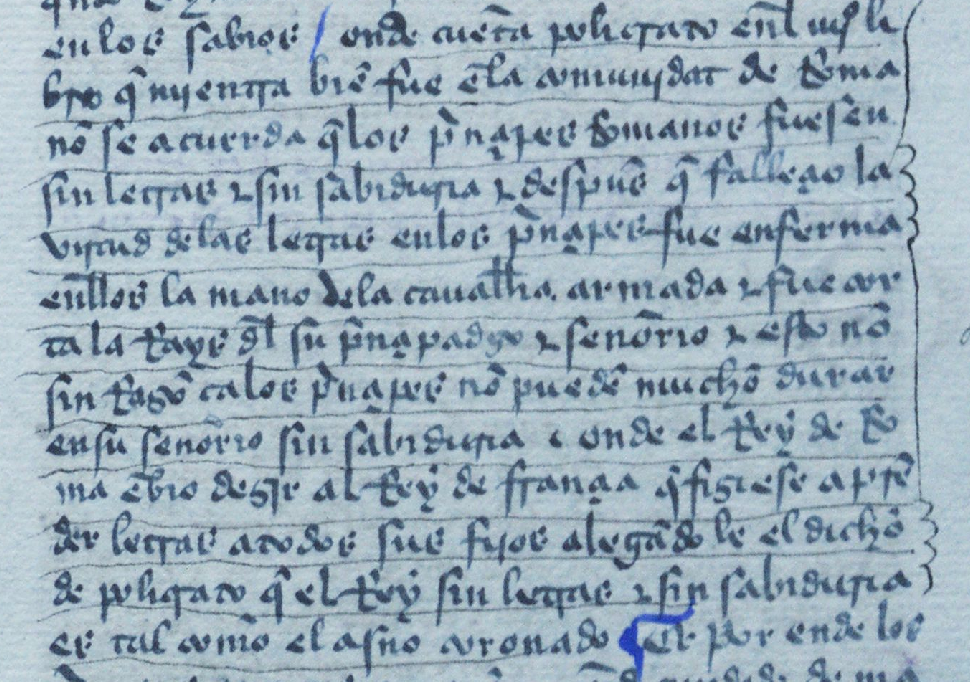 en los sabios onde cuẽta policrato en̄l vijº li
bro q̃ mientra biẽ fue ẽ la comunidat de Roma
nõ se acuerda q̃ los p̃nçipes Romanos fuesen
sin letras τ sin sabiduria τ despues q̃ falleçio la
virtud de las letras en los p̃nçipes fue enferma
enllos la mano de la cauałłia armada τ fue cor
tada la Rays dl̃ su p̃nçipadgo τ señorio τ esto nõ
sin Razõ ca los p̃nçipes nõ puedẽ mucho durar
en su señorio sin sabiduria onde el Rey de Ro
ma ẽbio dezir al Rey de françia q̃ fiziese aprẽ
der letras a todos sus fijos alegãdo le el dicho
de policrato q̃ el Rey sin letras τ sin sabiduria
es tal como el asno coronado Et por ende los